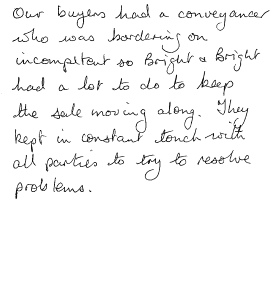 Our buyers had a conveyancer
who was bordering on
incompetent so Bright & Bright
had a lot to do to keep
the sale moving along. They
kept in constant touch with
all parties to try to resolve
problems.